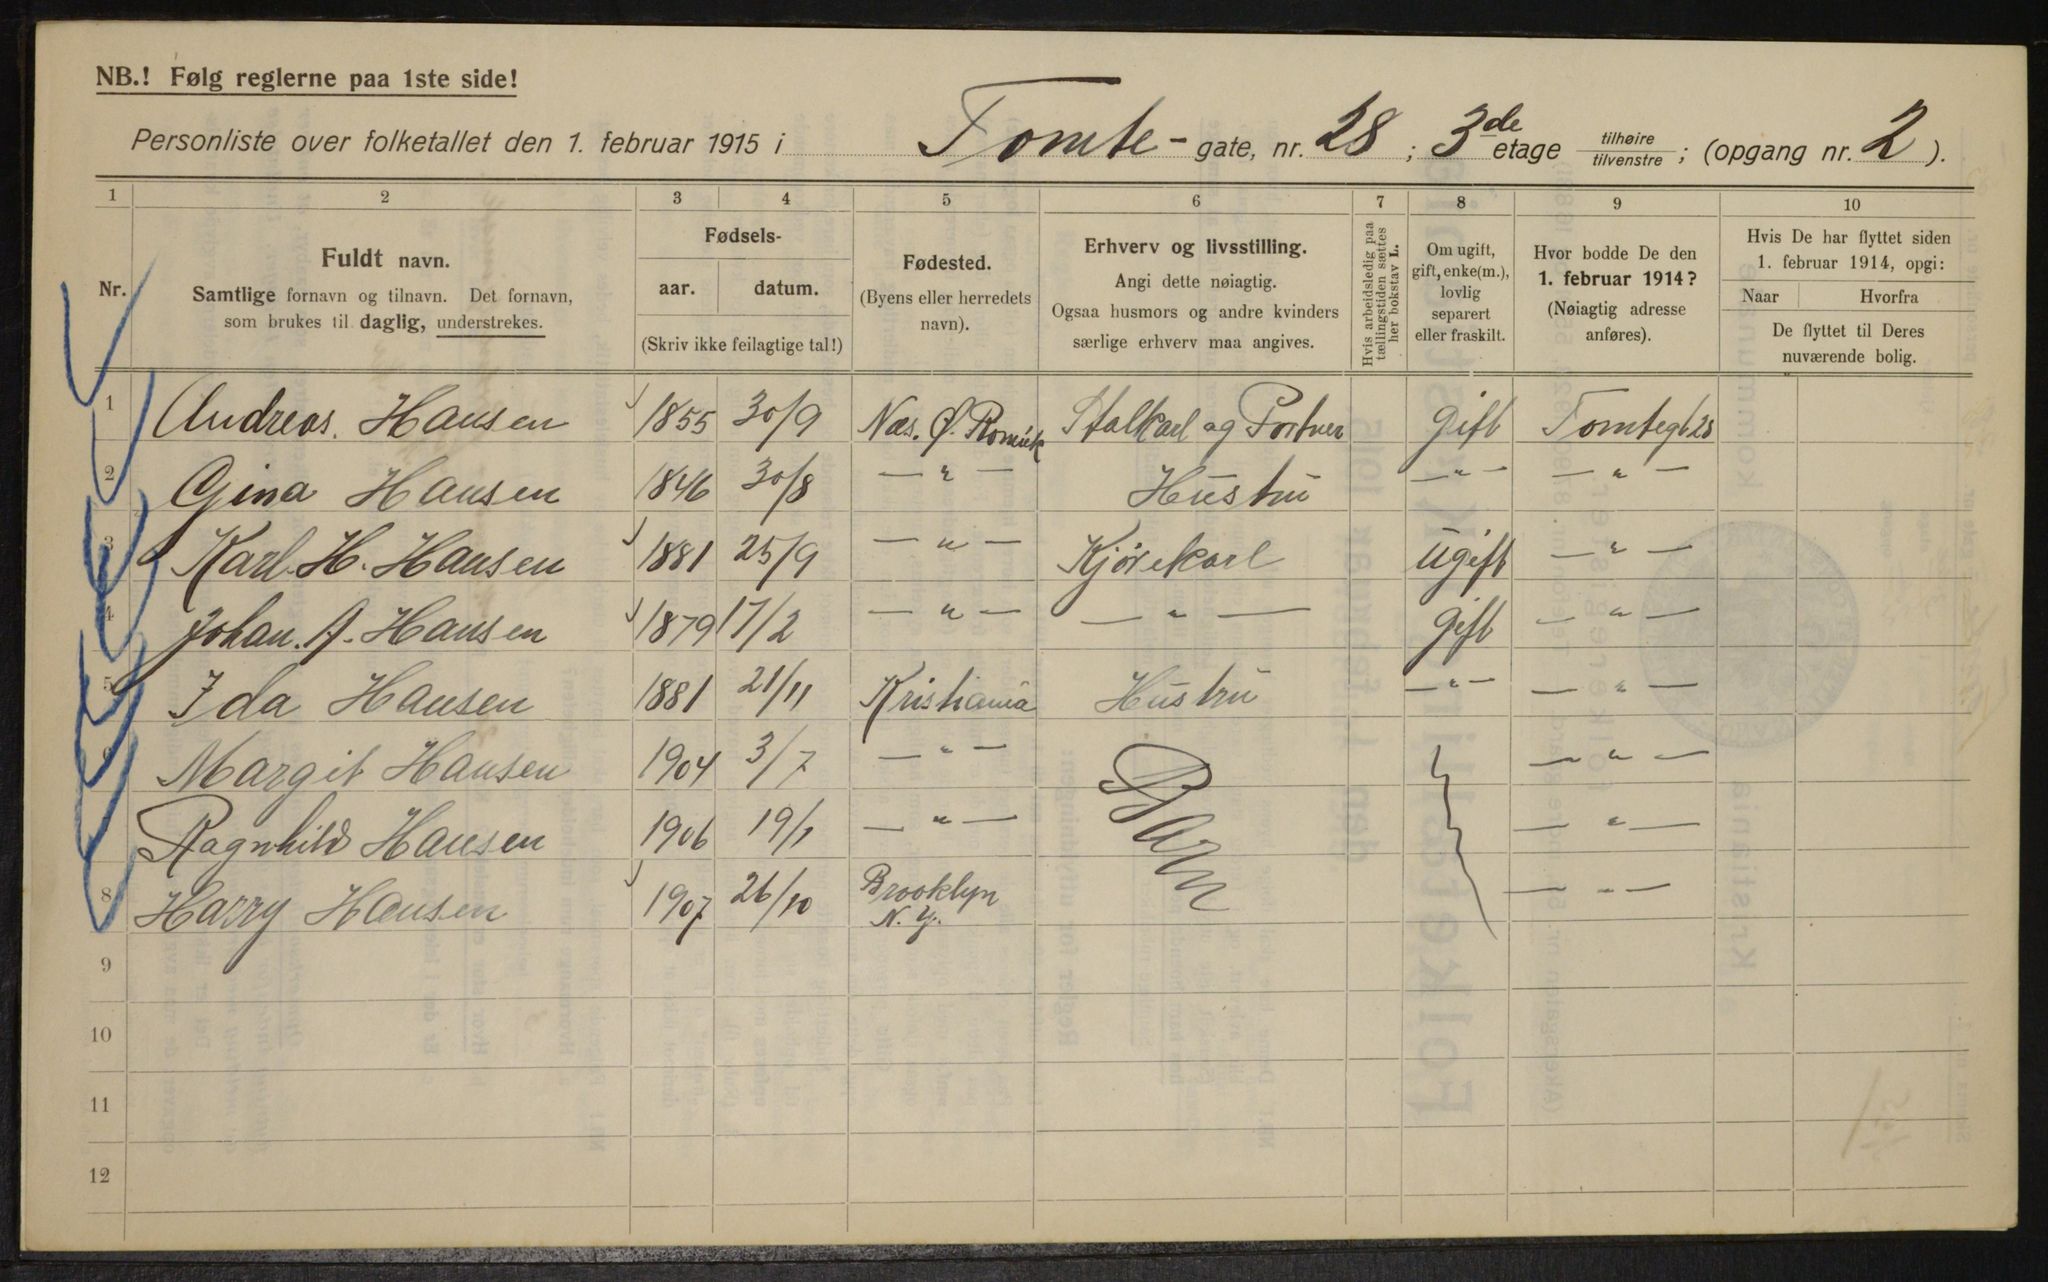 NB.! Følg reglerne paa 1ste side!
Personliste over folketallet den 1. februar 1915 i Tomte- gate, nr. 28; 3de etage tilhøire/tilvenstre; (opgang nr. 2).
1 2 3 4 5 6 7 8 9 10
Nr.
Fuldt navn.
Samtlige fornavn og tilnavn. Det fornavn,
som brukes til daglig, understrekes.
Fødsels-
aar. datum.
(Skriv ikke feilagtige tal!)
Fødested.
(Byens eller herredets
navn).
Erhverv og livsstilling.
Angi dette nøiagtig.
Ogsaa husmors og andre kvinders
særlige erhverv maa angives.
Hvis arbeidsledig paa
tællingstiden sættes
her bokstav L.
Om ugift,
gift, enke(m.),
lovlig
separert
eller fraskilt.
Hvor bodde De den
1. februar 1914?
(Nøiagtig adresse
anføres).
Hvis De har flyttet siden
1. februar 1914, opgi:
Naar Hvorfra
De flyttet til Deres
nuværende bolig.
1 Andreas. Hansen 1855 30/9 Næs. Ø. Romrik Stalkarl og Portner gift Tomtegt 28
2 Gina Hansen 1846 30/8 — " — Hustru — " — — " —
3 Karl. H. Hansen 1881 25/9 — " — Kjørekarl ugift — " —
4 Johan. A. Hansen 1879 17/2 — " — — " — gift — " —
5 Ida Hansen 1881 21/11 Kristiania Hustru — " — — " —
6 Margit Hansen 1904 3/7 — " — Barn — " —
Ragnhild Hansen 1906 19/1 — " — — " —
8 Harry Hansen 1907 26/10 Brooklyn N. Y. — " —
9
10
11
12